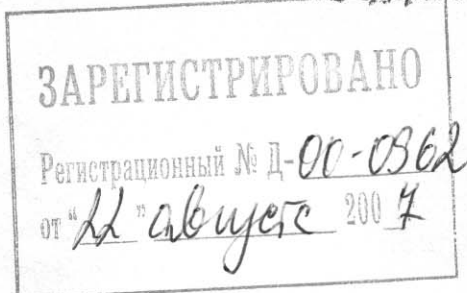 ЗАРЕГИСТРИРОВАНО
Регистрационный № Д-00-0362
от "22" августа 2007